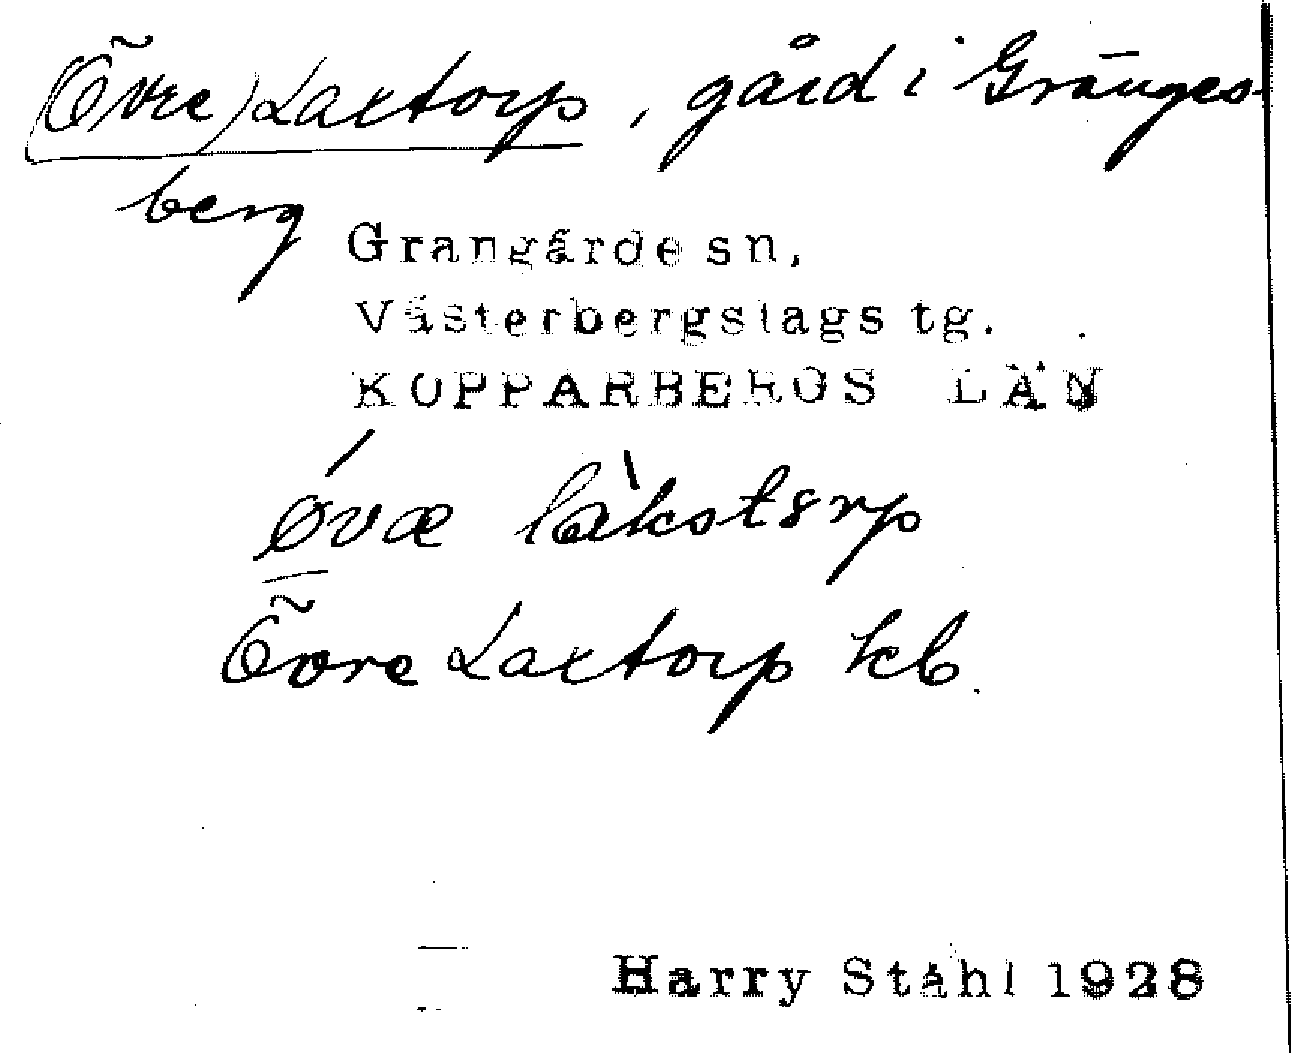 (Övre) Laxtorp, gård i Gränges-
berg
Grangärde sn,
Västerbergslags tg.
KOPPARBERGS LÄN
övæ làkstorp
Övre Laxtorp kb.
Harry Ståhl 1928